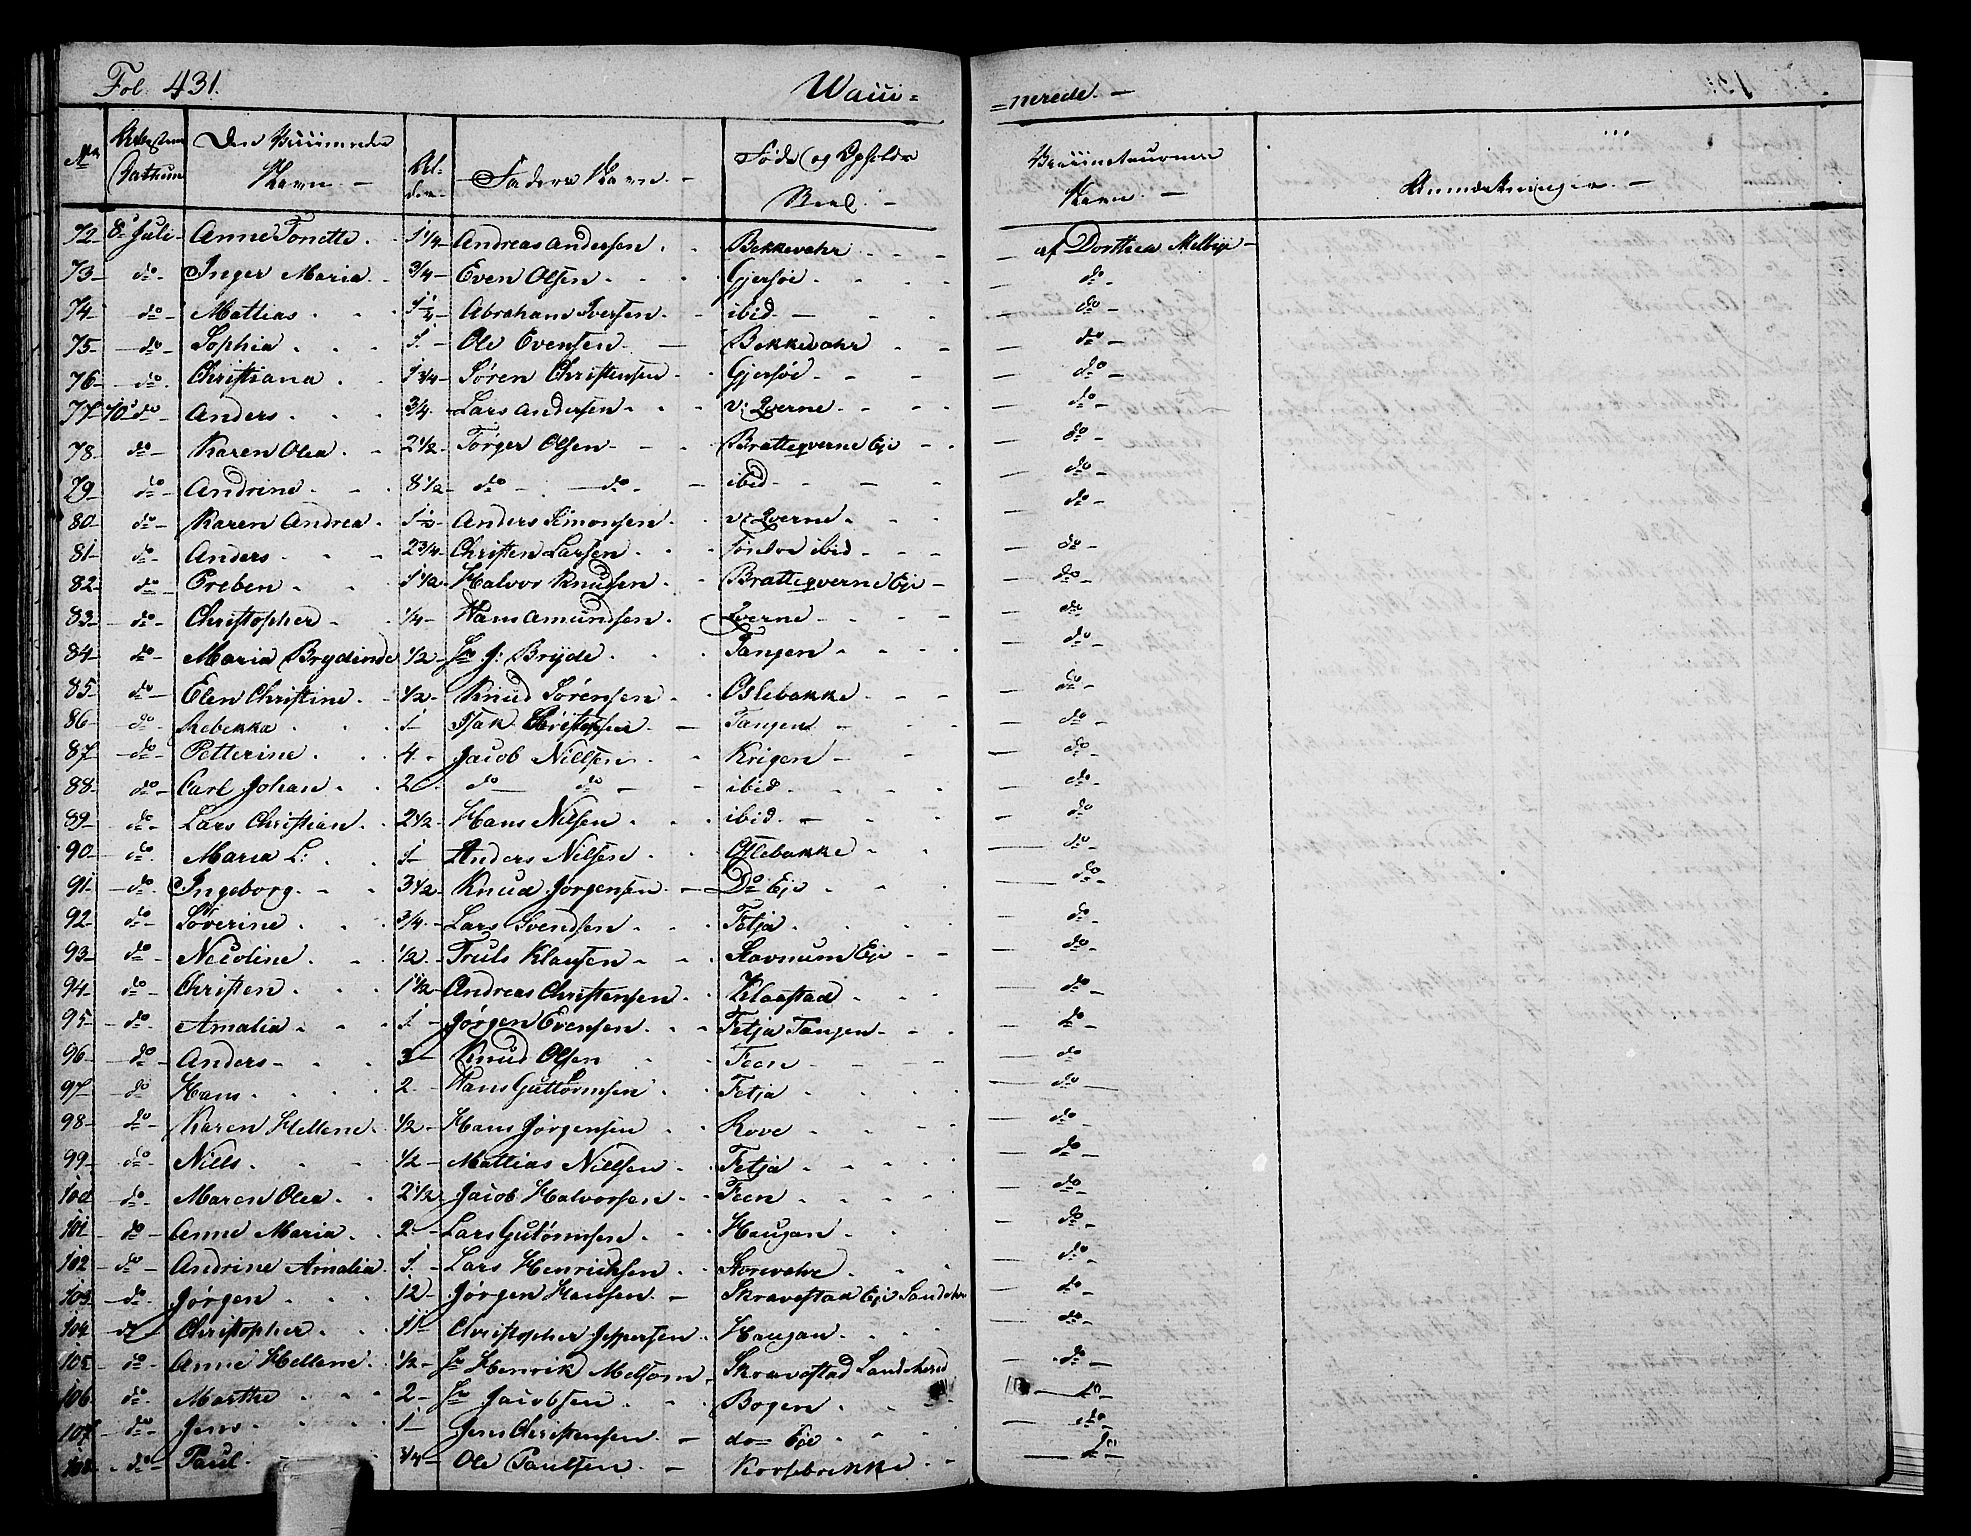 Fol. 431. Wacci=
=nerede. —
No Attestens Dathum Den Vaccineredes Navn. — Al- der. Faders Navn. — Føde og Opholds Sted. — Vaccinateurens Navn. — Anmærkninger. —
72 8de Juli Anne Tonette 1 1/4 Andreas Andersen Bekkevahr af Dorthea Melbye
73 do Inger Maria 3/4 Even Olsen Gjersøe do
74 do Mattias 1 1/4 Abraham Iversen ibid do
75 do Sophia 1 Ole Evensen Bekkevahr do
76 do Christiana 1 3/4 Søren Christensen Gjersøe do
77 10 do Anders 3/4 Lars Andersen v: Qverne do
78 do Karen Olea 2 1/2 Torger Olsen Bratteqverne Eje do
79 do Andrine 8 1/2 do do ibid do
80 do Karen Andrea 1 1/2 Anders Simonsen v: Qverne do
81 do Anders 2 3/4 Christen Larsen ibid do
82 do Preben 1 1/2 Halvor Knudsen Bratteqverne Eje do
83 do Christopher 1/4 Hans Amundsen Qverne do
84 do Maria Brydinde 1/2 Hr J: Bryde Tangen do
85 do Elen Christine 1/2 Knud Sørensen Oslebakke do
86 do Rebekka 1 Isak Christophersen Tangen do
87 do Petterine 4 Jacob Nielsen Krigen do
88 do Carl Johan 2 do do ibid do
89 do Lars Christian 2 1/2 Hans Nilsen ibid do
90 do Maria L: 1 Anders Nilsen Oslebakke do
91 do Ingeborg 3 1/2 Knud Jørgensen Do Eje do
92 do Søverine 3/4 Lars Svendsen Tetja do
93 do Nicoline 1/2 Truls Klausen Stavnum Eje do
94 do Christen 1 1/2 Andreas Christensen Klaastad do
95 do Amalia 1 Jørgen Evensen Tetja Tangen do
96 do Anders 3 Knud Olsen Feen do
97 do Hans 2 Hans Guttormsen Tetja do
98 do Karen Hellene 1/2 Hans Jørgensen Rove do
99 do Niels 1/2 Mattias Nielsen Tetja do
100 do Maren Olea 2 1/2 Jacob Halvorsen Feen do
101 do Anne Maria 2 Lars Gutormsen Haugan do
102 do Andrine Amalia 1 Lars Henricksen Storevahr do
103 do Jørgen 12 Jørgen Hansen Skravestad Eje do
104 do Christopher 11 Christopher Jeppersen Haugan do
105 do Anne Hellene 1/2 Hr Henrik Melsom Skravestad Sandeherred do
106 do Marthe 2 Hr Jacobsen Bogen do
107 do Jens 1 Jens Christensen do Eje do
108 do Paul 3/4 Ole Paulsen Korsebrekke do